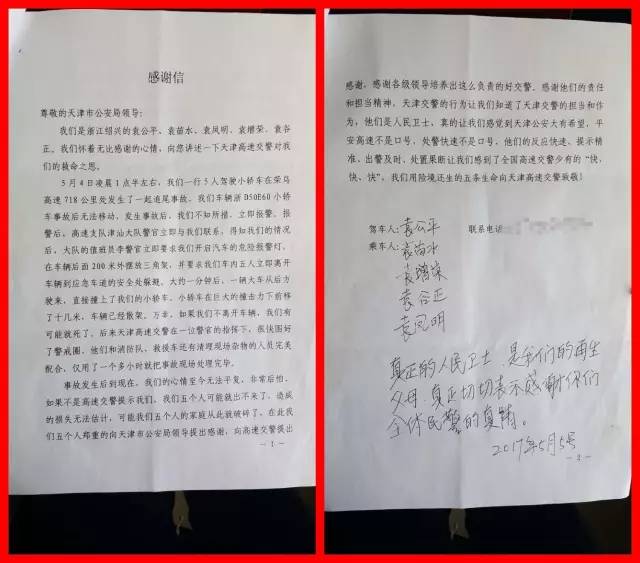 感谢信
尊敬的天津市公安局领导:
我们是浙江绍兴的袁公平、袁苗水、袁凤明、袁增荣、袁谷
正。我们怀着无比感谢的心情,向您讲述一下天津高速交警对我
们的救命之恩。
5月4日凌晨1点半左右,我们一行5人驾驶小轿车在荣乌
高速718公里处发生了一起追尾事故,我们车辆浙D50E60小轿
车事故后无法移动,发生事故后,我们不知所措,立即报警。报
警后,高速支队津汕大队警官立即与我们联系,得知我们的情况
后,大队的值班员李警官立即要求我们开启汽车的危险报警灯,
在车辆后面200米外摆放三角架,并要求我们车内五人立即离开
车辆到应急车道的安全处躲避,大约一分钟后,一辆大车从后方
驶来,直接撞上了我们的小轿车,小轿车在巨大的撞击力下前移
了十几米,车辆已经散架,万幸,如果我们不离开车辆,我们有
可能就死了。后来天津高速交警在一位警官的指挥下,很快围好
了警戒圈,他们和消防队、救援车还有清理现场杂物的人员完美
配合,仅用了一个多小时就把事故现场处理完毕。
事故发生后到现在,我们的心情至今无法平复,非常后怕,
如果不是高速交警提示我们,我们五个人可能就出不来了,造成
的损失无法估计,可能我们五个人的家庭从此就破碎了。在此我
们五个人郑重的向天津市公安局领导提出感谢,向高速交警提出
- 1 -
感谢,感谢各级领导培养出这么负责的好交警。感谢他们的责任
和担当精神,天津交警的行为让我们知道了天津交警的担当和作
为,他们是人民卫士,真的让我们感觉到天津公安大有希望,平
安高速不是口号,处警快速不是口号,他们的反应快速、提示精
准、出警及时、处置果断让我们感到了全国高速交警少有的“快、
快、快”,我们用险境还生的五条生命向天津高速交警致敬!
驾车人:袁公平 联系电话
乘车人:袁苗水
袁增荣
袁谷正
袁凤明
真正的人民卫士,是我们的再生
父母,真正切切表示感谢你们
全体民警的真情。
2017年5月5号
- 2 -